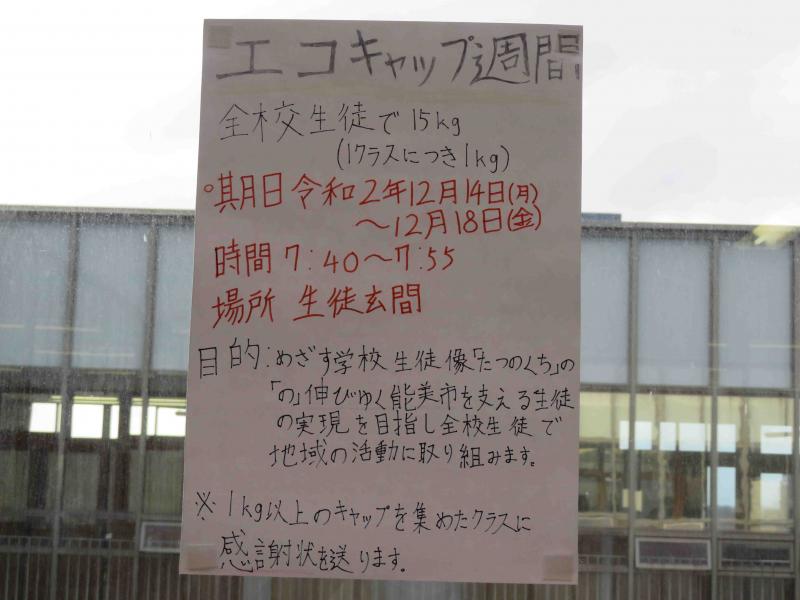 エコキャップ週間
全校生徒で15kg
(1クラスにつき1kg)
○期日 令和2年12月14日(月)
～12月18日(金)
時間 7:40～7:55
場所 生徒玄関
目的:めざす学校生徒像「たつのくち」の
「の」伸びゆく能美市を支える生徒
の実現を目指し全校生徒で
地域の活動に取り組みます。
※1kg以上のキャップを集めたクラスに
感謝状を送ります。